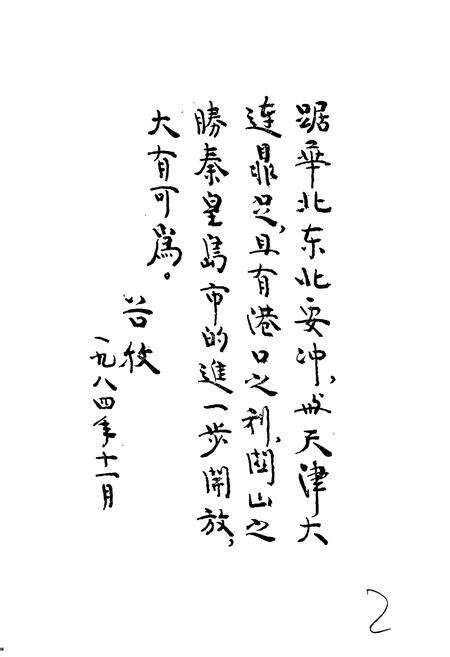 踞華北东北要冲，成天津大
连鼎足，具有港口之利，関山之
勝秦皇島市的進一步開放，
大有可爲。
谷牧
一九八四年十一月
2